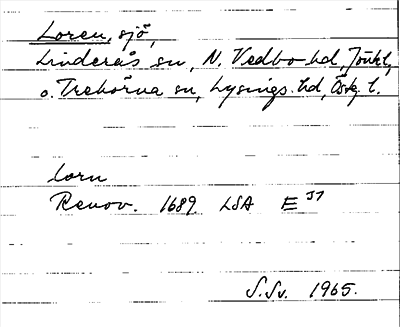 Loren, sjö,
Linderås sn, N. Vedbo hd, Jönk. l,
o. Trehörna sn, Lysings hd, Östg. l.
lorn
Renov. 1689 LSA E 37
S. Sv. 1965.